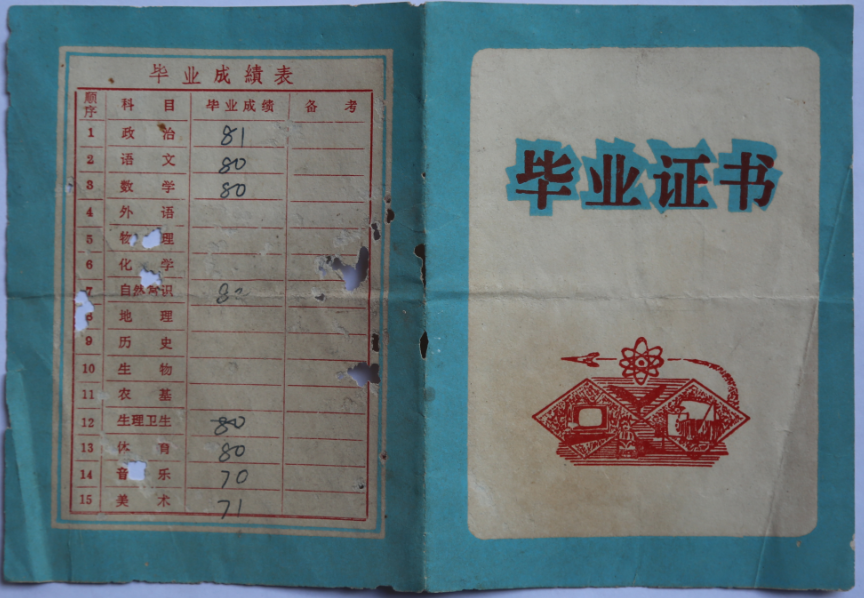 毕业成績表
顺序 科目 毕业成绩 备考
1 政治 81
2 语文 80
3 数学 80
4 外语
5 物理
6 化学
7 自然常识
8 地理
9 历史
10 生物
11 农基
12 生理卫生 80
13 体育 80
14 音乐 70
15 美术 71
毕业证书